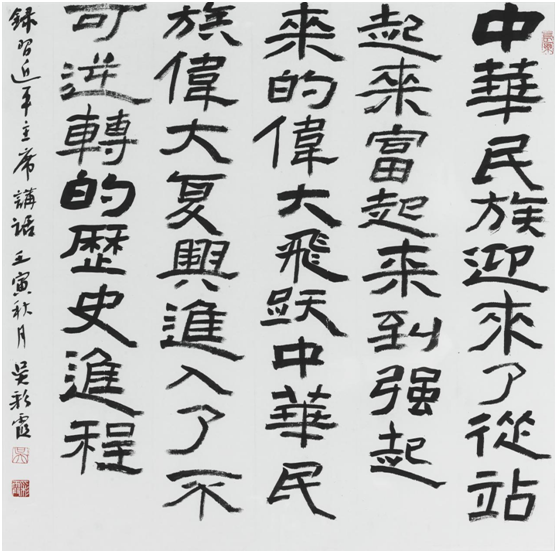 中華民族迎來了從站
起來富起来到强起
来的偉大飛跃中華民
族偉大复興進入了不
可逆轉的歷史進程
錄習近平主席講話 壬寅秋月 吴彩霞